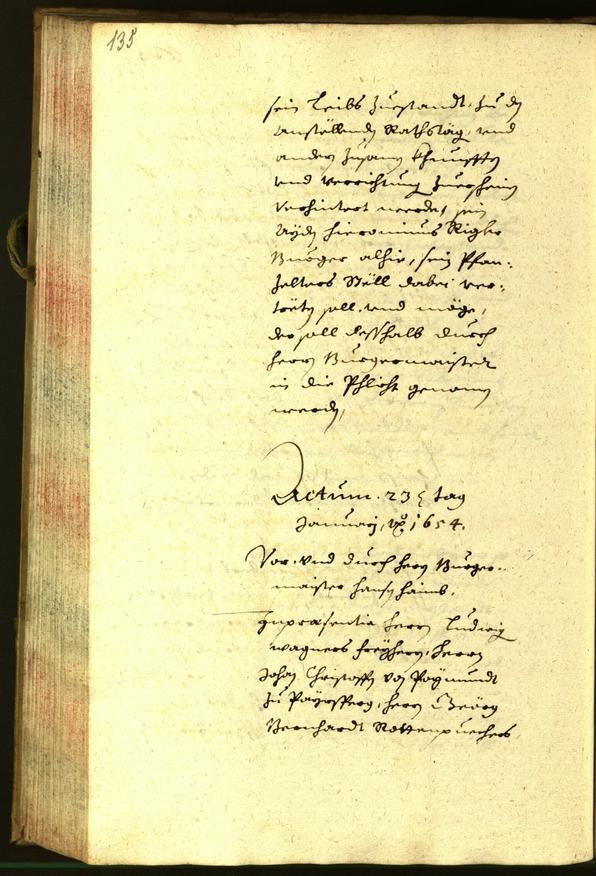 135
sein Leibs Zuestandt, zu den
anstöllenden Rathstäg, und
andern Zusamen Khunfften
und verrichtung Zuerscheinen
verhintert werde, sein
Ayden Hieronimus Rigler
Burger alhie, sein Pfan-
Zelters Stöll dabei ver-
tröten soll und möge,
der soll desshalb durch
herrn Burgermaister
in die Phlicht genomen
werden,
Actum. 23 tag
Januarij, 1654.
Vor. und durch herrn Burger-
maister Hansen Haimb.
In praesentia herrn Ludwig
Wagners Freyherrn, herrn
Johan Christoffen von Paymundt
zu Payrsperg, herrn Geörg
Bernhardt Rottenpuechers